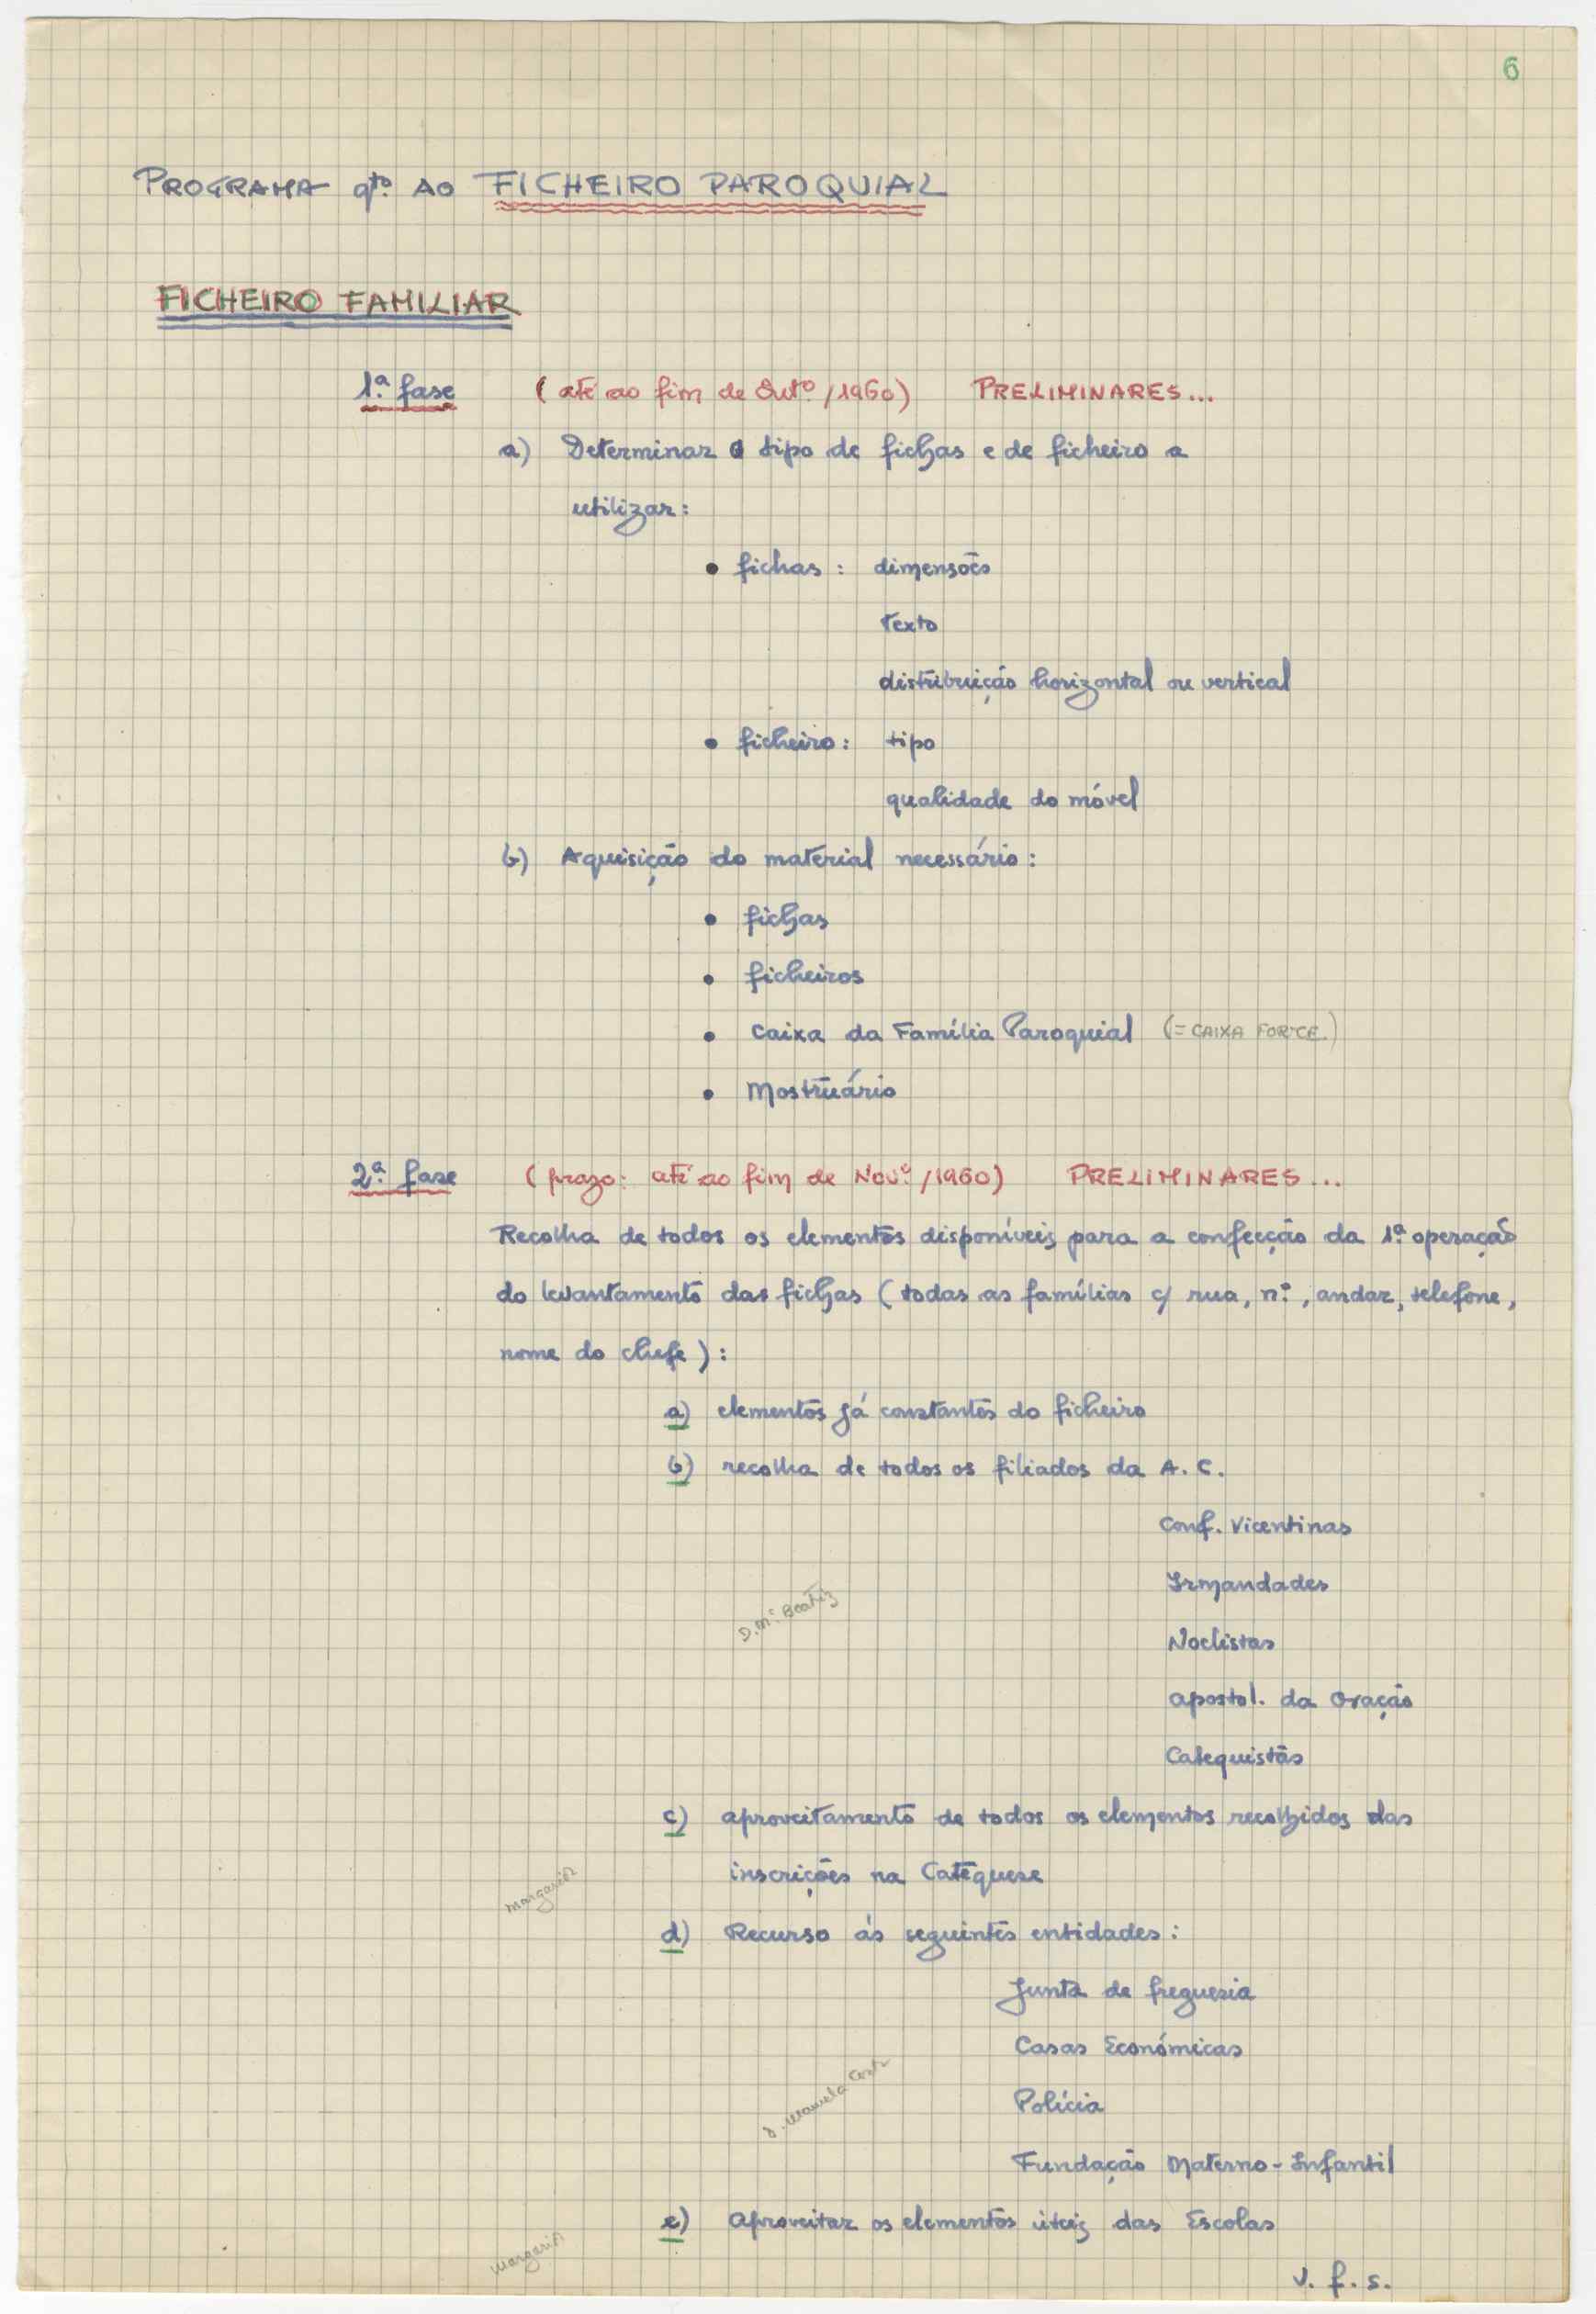 6
PROGRAMA qto. AO FICHEIRO PAROQUIAL
FICHEIRO FAMILIAR
1.ª fase (até ao fim de Outº/1960) PRELIMINARES...
a) Determinar o tipo de fichas e de ficheiro a
utilizar:
• fichas: dimensões
texto
distribuição horizontal ou vertical
• ficheiro: tipo
qualidade do móvel
b) Aquisição do material necessário:
• fichas
• ficheiros
• Caixa da Família Paroquial (= CAIXA FORTE.)
• Mostruário
2.ª fase (prazo: até ao fim de Nov.º/1960) PRELIMINARES...
Recolha de todos os elementos disponíveis para a confecção da 1.ª operação
do levantamento das fichas (todas as famílias c/ rua, n.º, andar, telefone,
nome do chefe):
a) elementos já constantes do ficheiro
b) recolha de todos os filiados da A. C.
Conf. Vicentinas
Irmandades
D. Mª Beatriz
Noelistas
Apostol. da Oração
Catequistas
c) aproveitamento de todos os elementos recolhidos das
inscrições na Catequese
Margarida
d) Recurso às seguintes entidades:
Junta de freguesia
Casas Económicas
D. Manuela Costa
Polícia
Fundação Materno-Infantil
e) Aproveitar os elementos úteis das Escolas
Margarida
v. f. s.